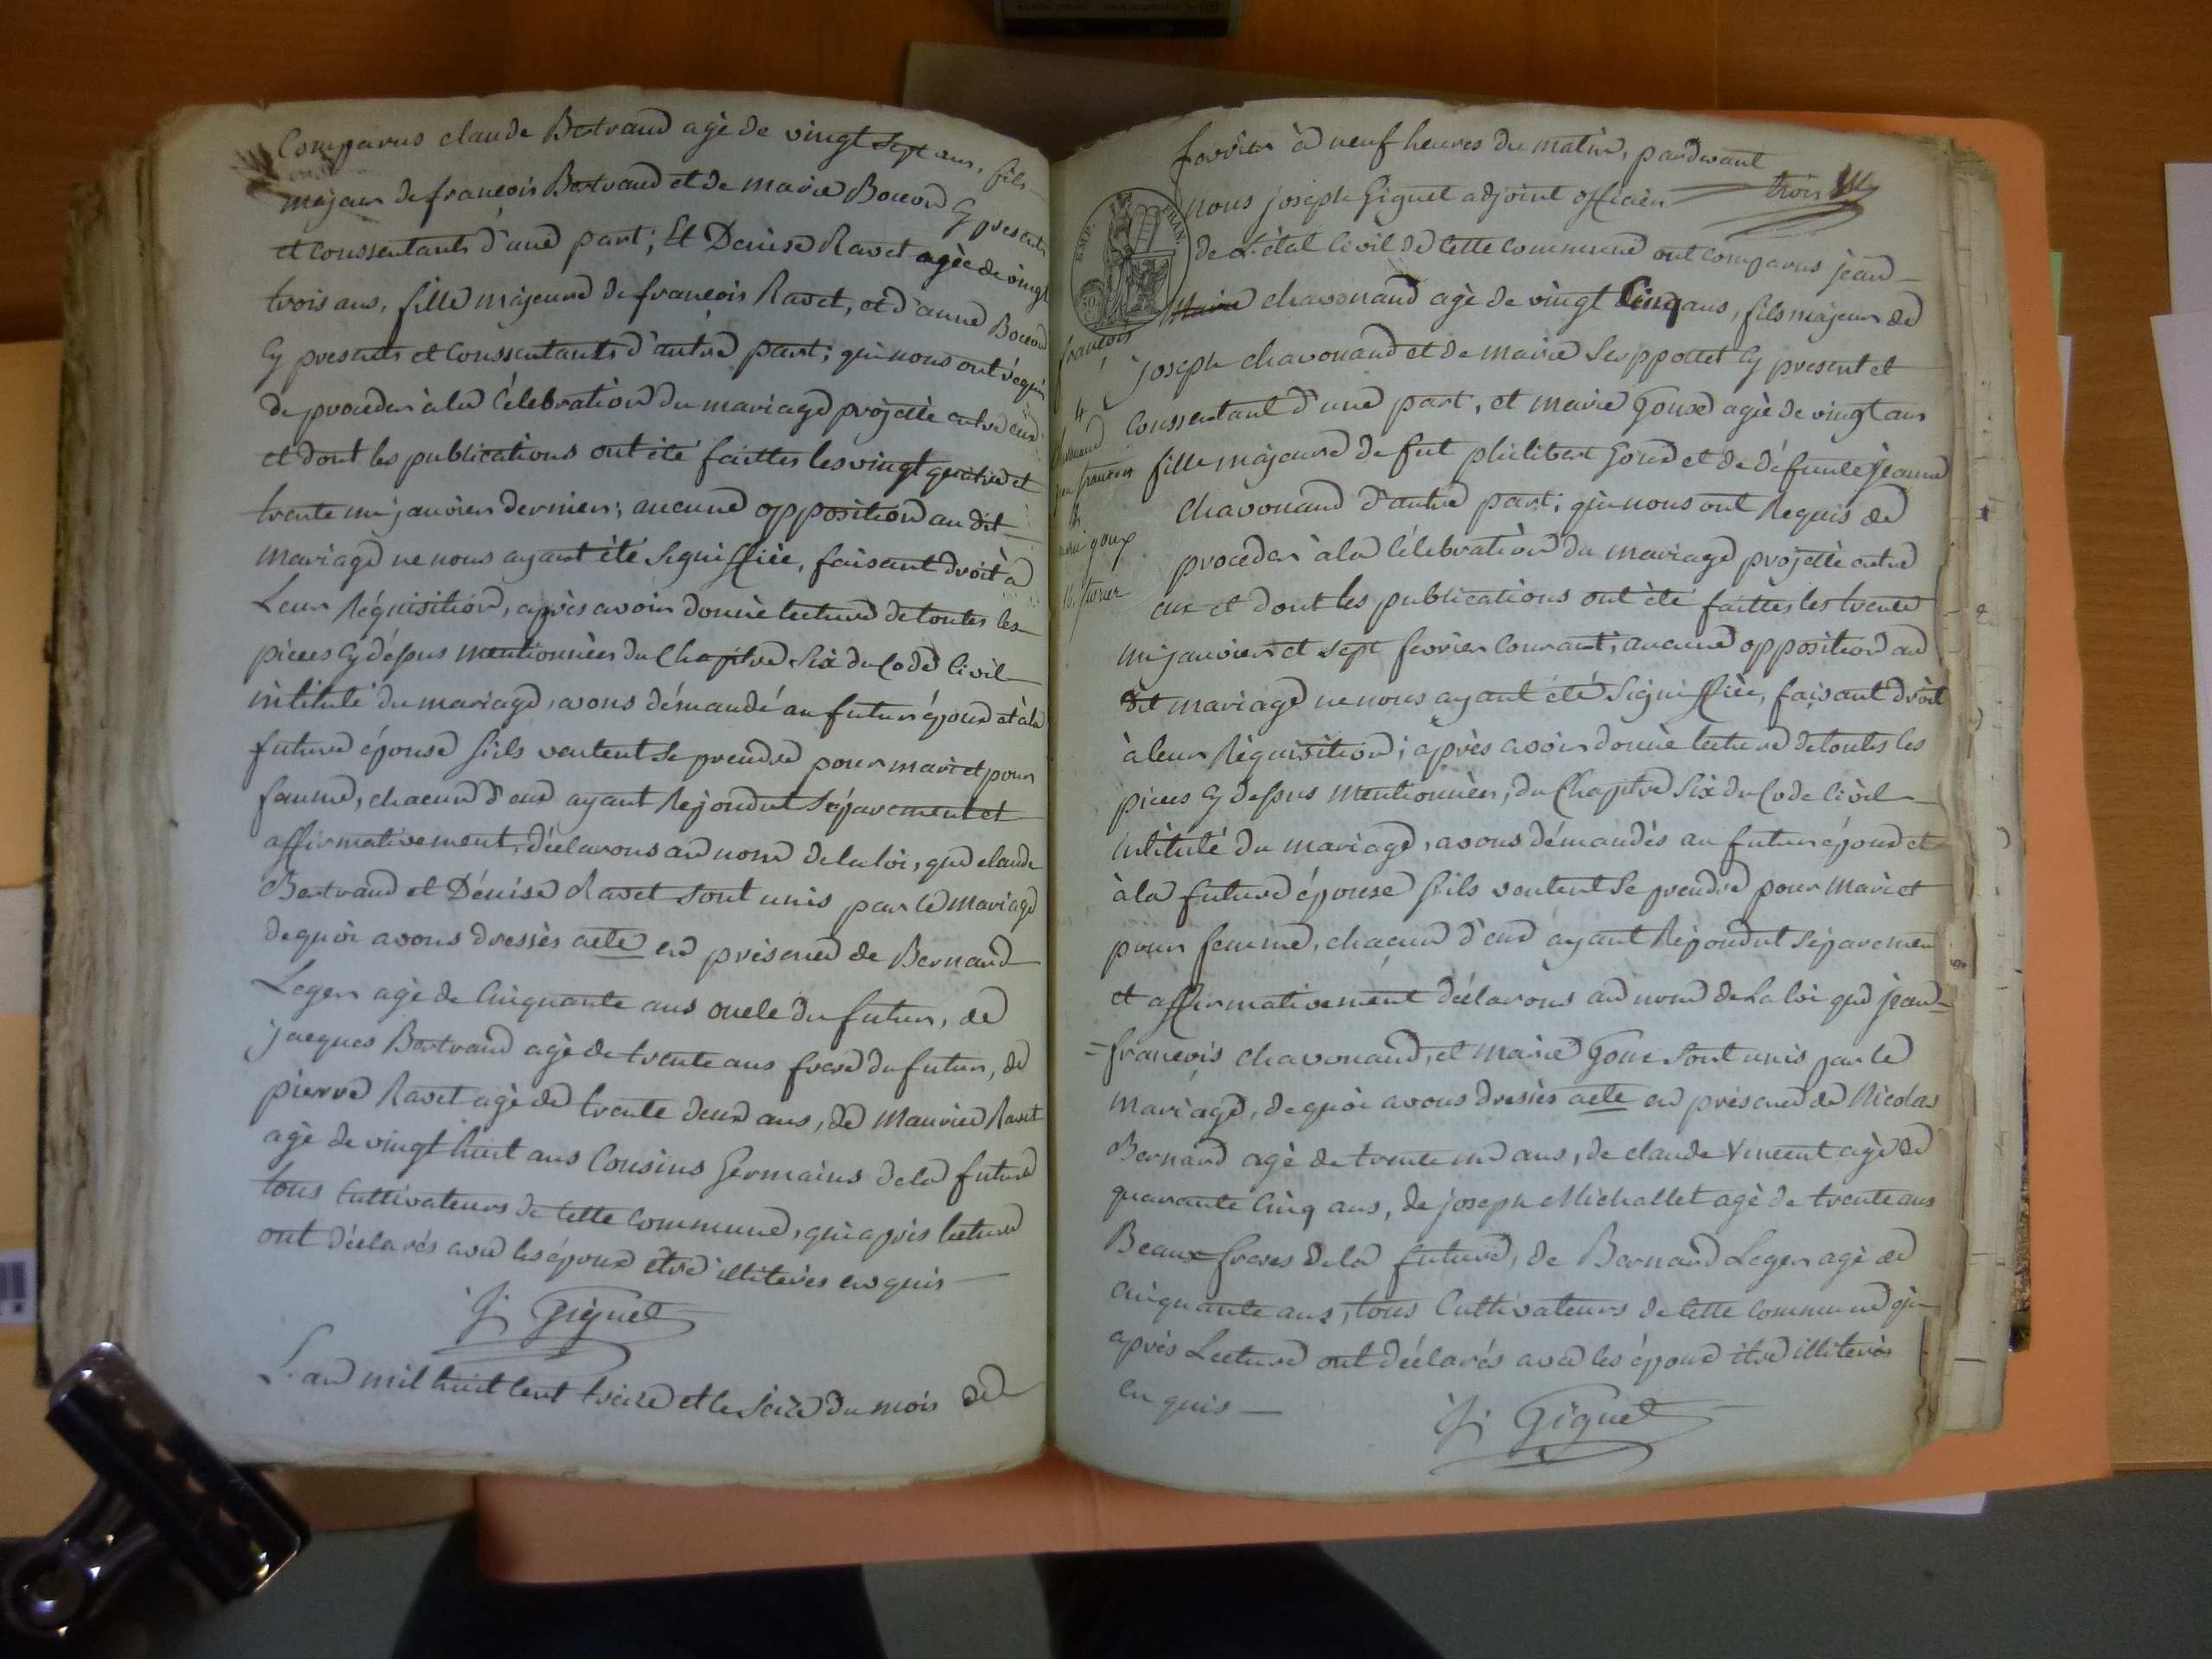 Comparus claude Bertrand agé de vingt sept ans, fils
majeur de francois Bertrand et de marie Bocon Cy presents
et conssentants d'une part; Et Denise Ravet agée de vingt
trois ans, fille majeure de francois Ravet, et d'anne Bocon
Cy presents et Conssentants d'autre part; qui nous ont requis
de proceder à la Célebration du mariage projetté entre eux
et dont les publications ont été faittes les vingt quatre et
trente un janvier dernier; aucune opposition au dit
mariage ne nous ayant été signiffiée, faisant droit à
Leur Réquisition, après avoir donné lecture de toutes les
pieces Cy déssus mentionnées du Chapitre Six du Code Civil
intitulé du mariage, avons démandé au futur époux et à la
future épouse s'ils veulent se prendre pour mari et pour
famme, chacun d'eux ayant Répondut séparement et
affirmativement, déclarons au nom de la loi, que claude
Bertrand et Dénise Ravet sont unis par le mariage
de quoi avons dressés acte en présence de Bernard
Leger agé de Cinquante ans oncle du futur, de
jacques Bertrand agé de trente ans frere du futur, de
pierre Ravet agé de trente deux ans, de Maurice Ravet
agé de vingt huit ans Cousins Germains de la future
tous Cuttivateurs de Cette Commune, qui après lecture
ont déclarés avec les époux être illiterés enquis
J. Giguet
L'an mil huit Cent treize et le seize du mois de
fevrier à neuf heures du matin, pardevant
trois
nous joseph Giguet adjoint officier
EMP. FRAN.
50
de L'état Civil de Cette Commune ont Comparus jean
Marie chavonand agé de vingt Cinq ans, fils majeur de
francois
joseph chavonand et de marie Serppottet Cy present et
Conssentant d'une part, et marie Goux agée de vingt ans
fille majeure de fut philibert Goux et de défunte jeanne
chavonand d'autre part; qui nous ont Requis de
proceder à la Célebration du mariage projetté entre
eux et dont les publications ont été faittes les trente
un janvier et sept fevrier Courant; aucune opposition au
dit mariage ne nous ayant été Signiffiée, faisant droit
à leur Réquisition; après avoir donné lecture de toutes les
pieces Cy dessus mentionnées, du Chapitre Six du Code Civil
intitulé du mariage, avons démandés au futur époux et
à la future épouse s'ils veulent se prendre pour mari et
pour femme, chacun d'eux ayant Répondut séparemen
et affirmativement déclarons au nom de la loi que jean
francois chavonand, et marie Goux sont unis par le
mariage, de quoi avons dressés acte en présence de Nicolas
Bernard agé de trente un ans, de claude Vincent agé de
quarante Cinq ans, de joseph Michallet agé de trente ans
Beaux freres de la future, de Bernard Leger agé de
Cinquante ans, tous Cuttivateurs de Cette Commune qui
après Lecture ont déclarés avec les époux être illiterés
enquis
J. Giguet
4
jean francois
&
marie goux
16. fevrier